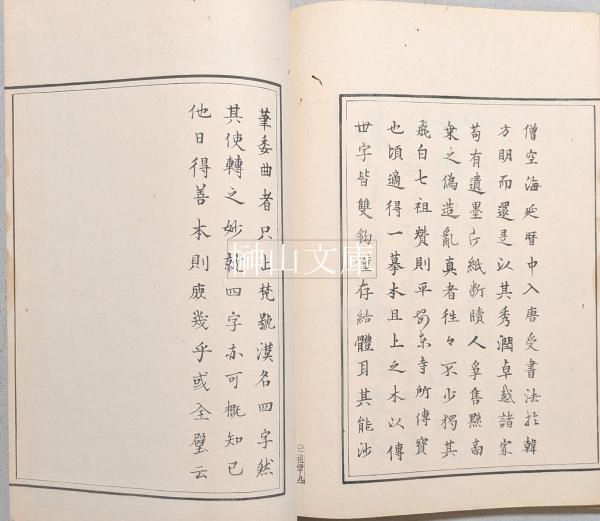 僧空海延暦中入唐受書法於韓
方明而還是以其秀潤卓越諸家
苟有遺墨片紙断牘人爭售黠商
棄之偽造亂真者往々不少獨其
飛白七祖賛則平安東寺所傳寶
也頃適得一摹本且上之木以傳
世字皆雙鈎僅存結體耳其能渉
筆委曲者只止梵號漢名四字然
其使轉之妙就四字亦可概知已
他日得善本則庶幾乎或全璧云
榊山文庫